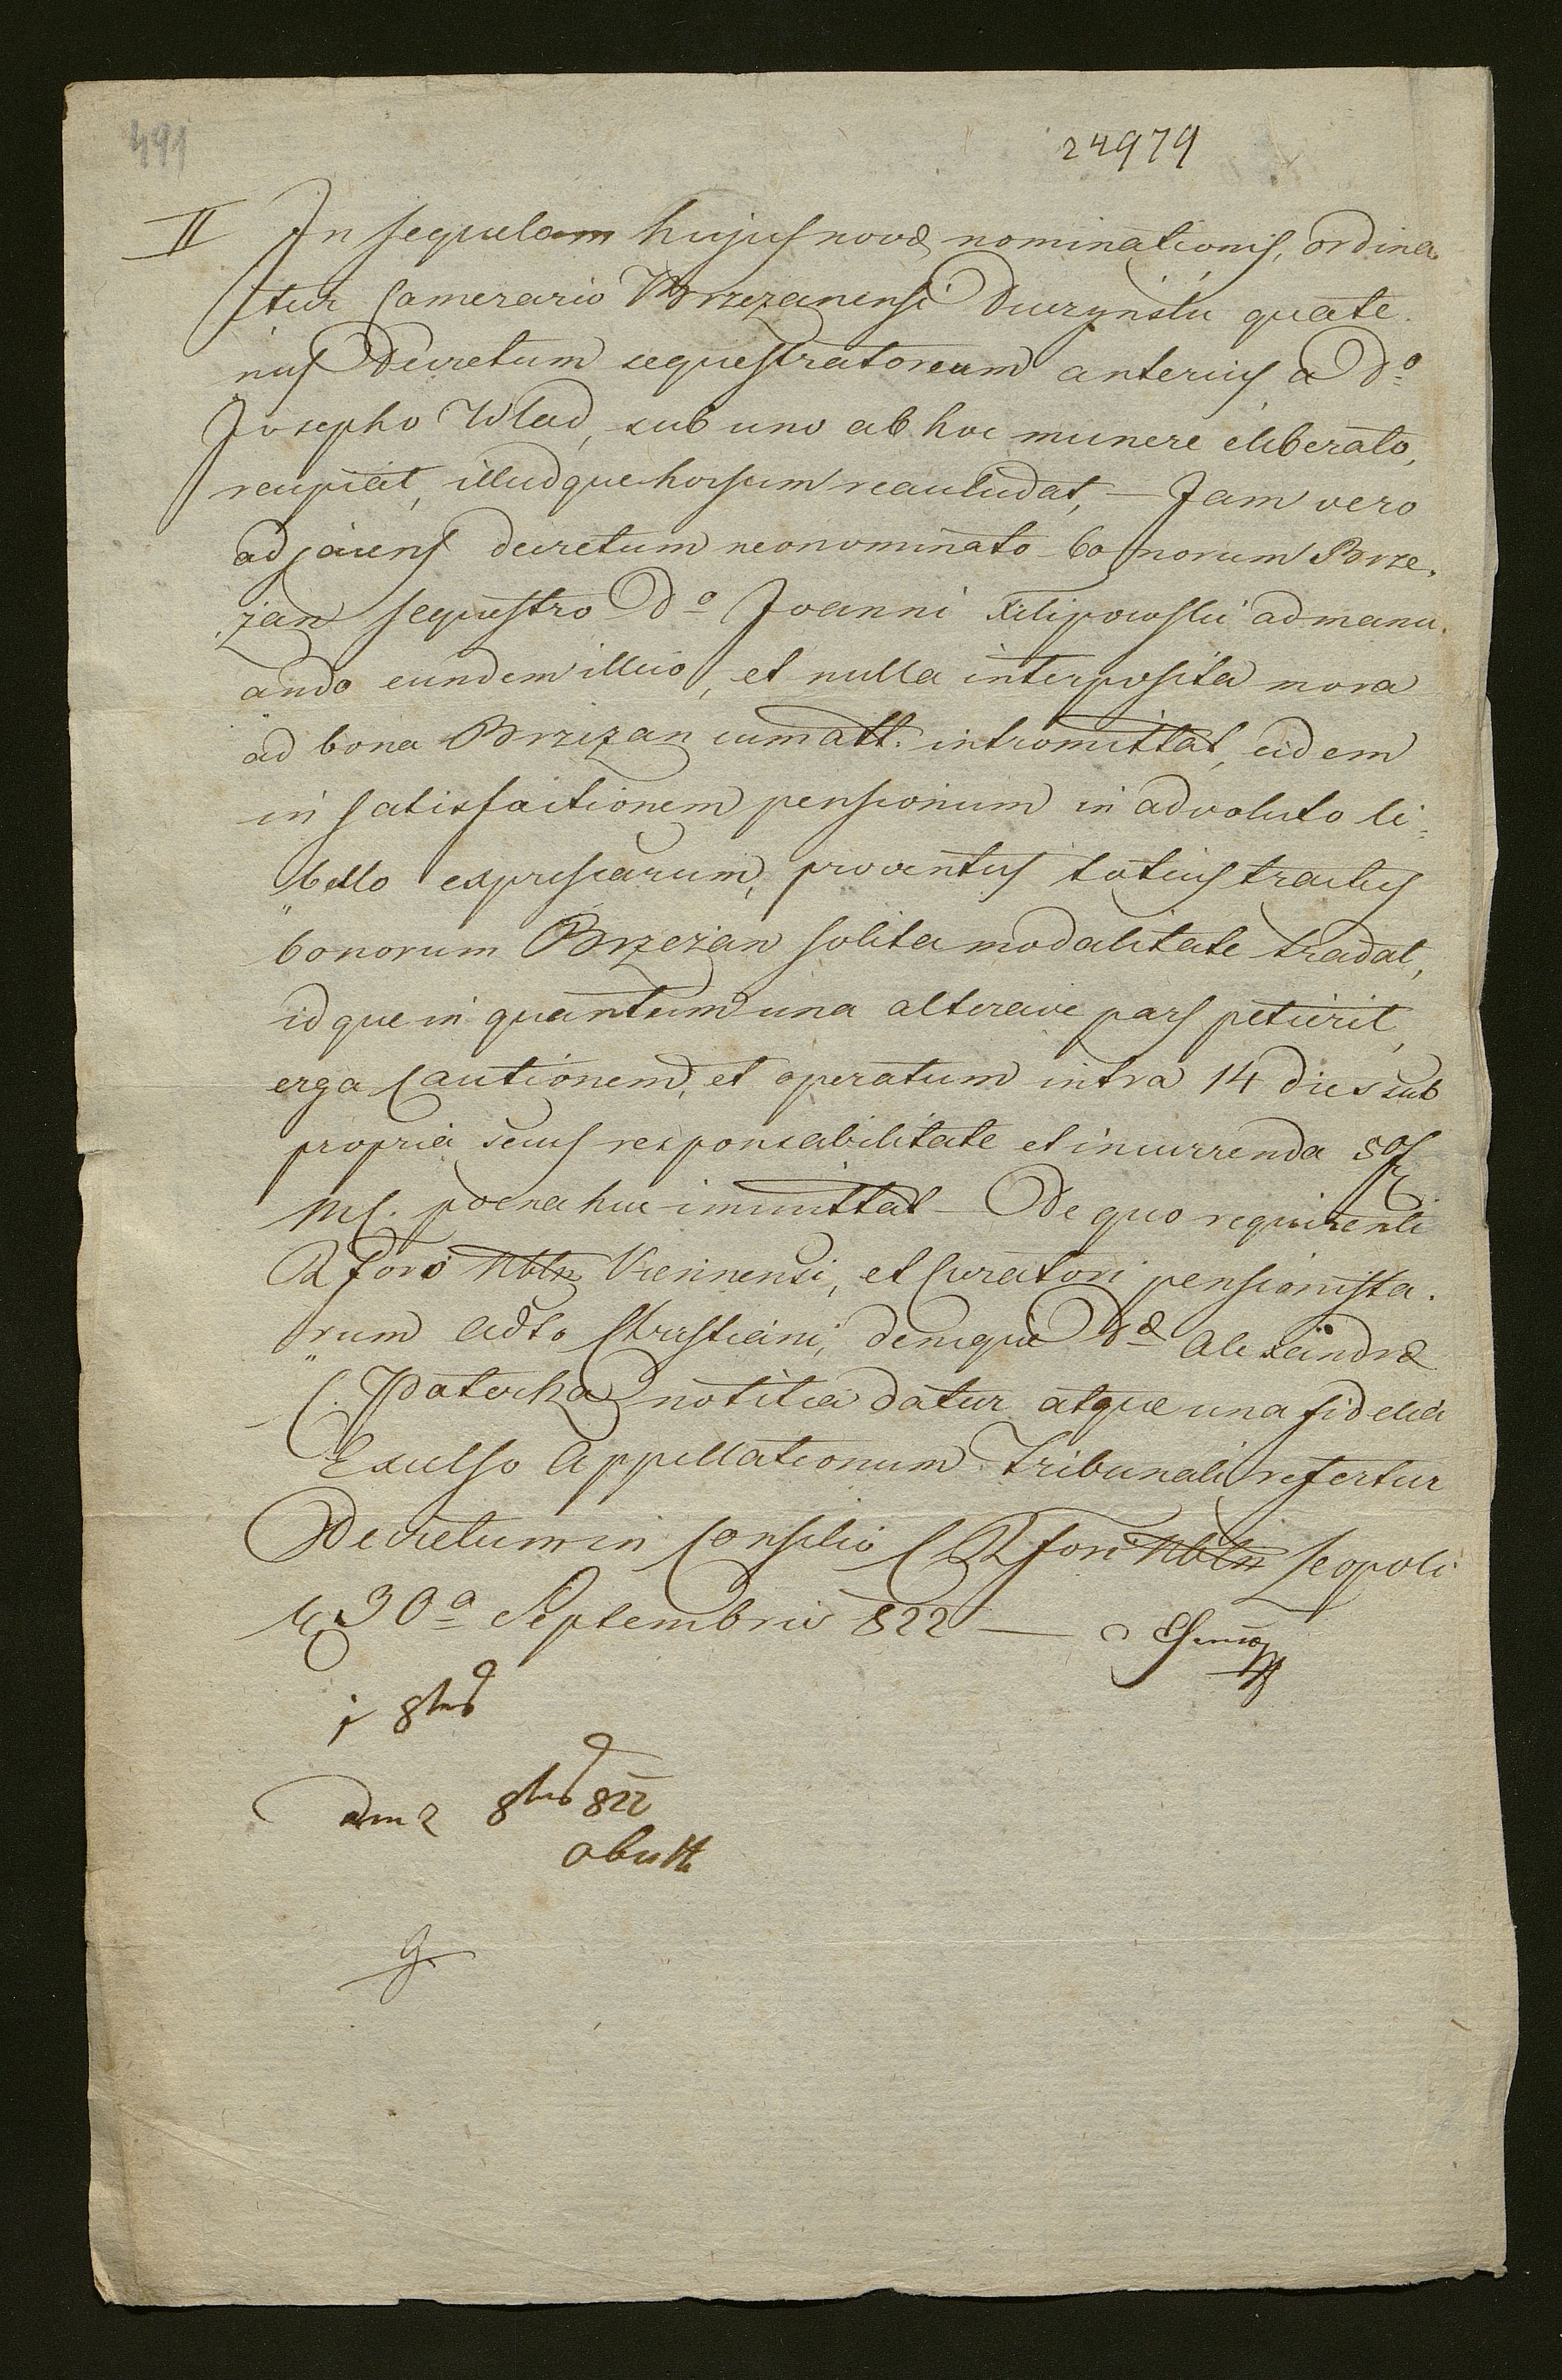 491
24979
II In sequelam hujus novæ nominationis, ordina
tur Camerario Brzezanensi Duczynski quate.
nus Decretum sequestratoreum anterius a Dº
Josepho Wlad, sub uno ab hoc munere eliberato,
recupiat, illudque horsum reacludat, — Jam vero
adjacens decretum neonominato bonorum Brze.
zan sequestro Dº Joanni Filipowski admanu.
ando eundem illico, et nulla interposita mora
ad bona Brzezan cum att. intromittat, eidem
in satisfactionem pensionum in advoluto li=
bello expressarum, proventus totius tractus
bonorum Brzezan solita modalitate tradat,
idque in quantum una alterave pars petierit,
erga Cautionem, et operatum intra 14 dies sub
propria secus responsabilitate et incurrenda 50 f
MC. poena huc immittat — De quo requirenti
R Foro Nbln Viennensi, et Curatori pensionista.
rum Adto Christiani, denique Dæ Alexandræ
C. Potocka notitia datur atque una fidelia
Excelso Appellationum Tribunali refertur
Decretum in Consilio C R Fori Nbln Leopoli
30ª Septembris 822 —
1 8bris
2 8bris 822